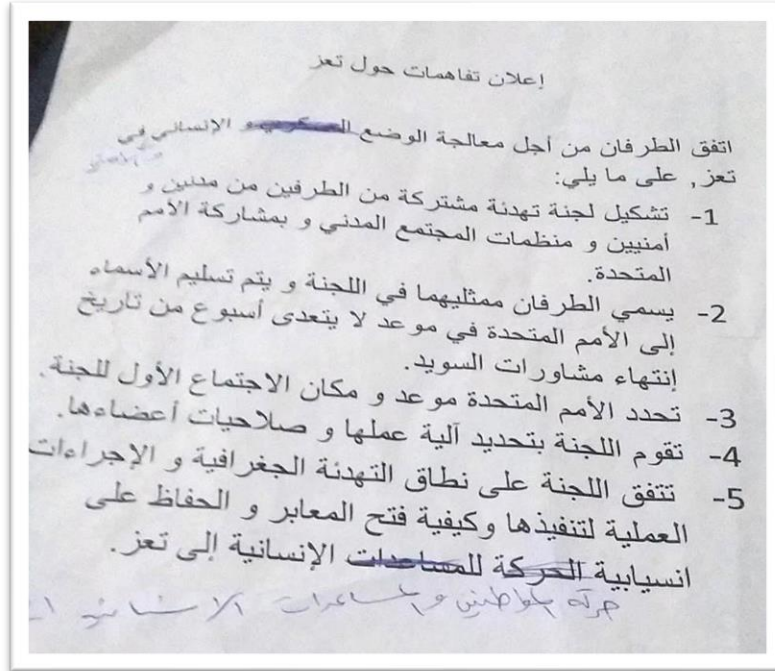 إعلان تفاهمات حول تعز
اتفق الطرفان من أجل معالجة الوضع العسكري و الإنساني في
تعز, على ما يلي:
1- تشكيل لجنة تهدئة مشتركة من الطرفين من مدنين و
أمنيين و منظمات المجتمع المدني و بمشاركة الأمم
المتحدة.
2- يسمي الطرفان ممثليهما في اللجنة و يتم تسليم الأسماء
إلى الأمم المتحدة في موعد لا يتعدى أسبوع من تاريخ
إنتهاء مشاورات السويد.
3- تحدد الأمم المتحدة موعد و مكان الاجتماع الأول للجنة.
4- تقوم اللجنة بتحديد آلية عملها و صلاحيات أعضاءها.
5- تتفق اللجنة على نطاق التهدئة الجغرافية و الإجراءات
العملية لتنفيذها وكيفية فتح المعابر و الحفاظ على
انسيابية الحركة للمساعدات الإنسانية إلى تعز.
حركة المواطنين و المساعدات الانسانية